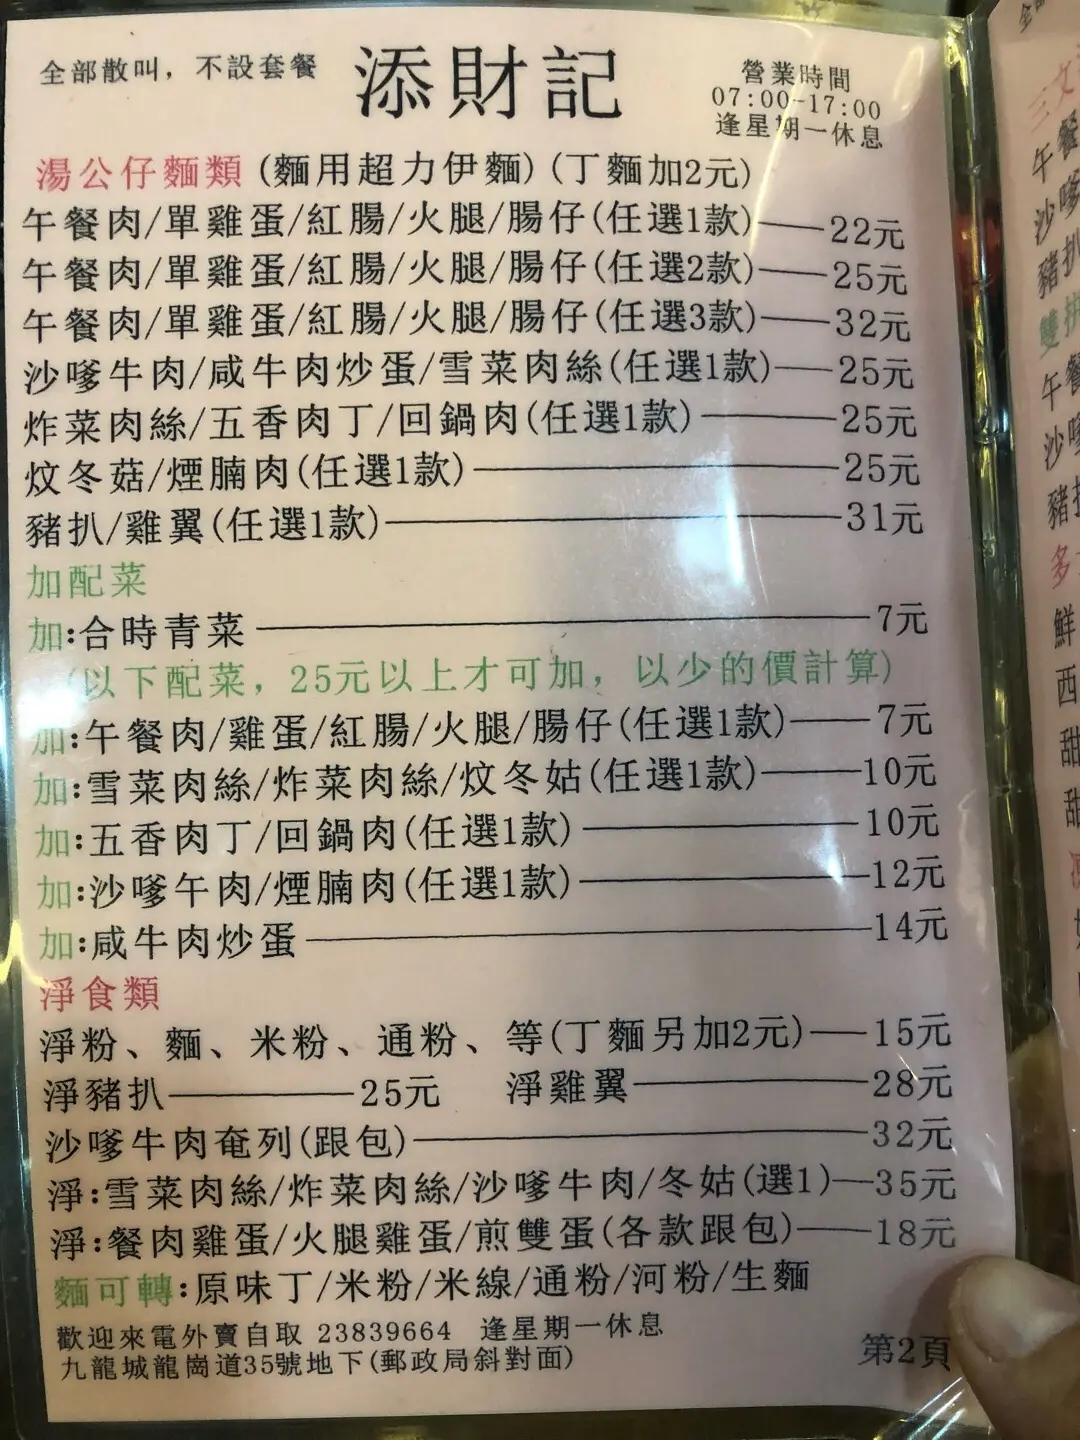 全部散叫，不設套餐
添財記
營業時間
07:00-17:00
逢星期一休息
湯公仔麵類(麵用超力伊麵)(丁麵加2元)
午餐肉/單雞蛋/紅腸/火腿/腸仔(任選1款)——22元
午餐肉/單雞蛋/紅腸/火腿/腸仔(任選2款)——25元
午餐肉/單雞蛋/紅腸/火腿/腸仔(任選3款)——32元
沙嗲牛肉/咸牛肉炒蛋/雪菜肉絲(任選1款)——25元
炸菜肉絲/五香肉丁/回鍋肉(任選1款)——25元
炆冬菇/煙腩肉(任選1款)——25元
豬扒/雞翼(任選1款)——31元
加配菜
加:合時青菜——7元
(以下配菜，25元以上才可加，以少的價計算)
加:午餐肉/雞蛋/紅腸/火腿/腸仔(任選1款)——7元
加:雪菜肉絲/炸菜肉絲/炆冬姑(任選1款)——10元
加:五香肉丁/回鍋肉(任選1款)——10元
加:沙嗲午肉/煙腩肉(任選1款)——12元
加:咸牛肉炒蛋——14元
淨食類
淨粉、麵、米粉、通粉、等(丁麵另加2元)——15元
淨豬扒——25元 淨雞翼——28元
沙嗲牛肉奄列(跟包)——32元
淨:雪菜肉絲/炸菜肉絲/沙嗲牛肉/冬姑(選1)—35元
淨:餐肉雞蛋/火腿雞蛋/煎雙蛋(各款跟包)——18元
麵可轉:原味丁/米粉/米線/通粉/河粉/生麵
歡迎來電外賣自取 23839664 逢星期一休息
九龍城龍崗道35號地下(郵政局斜對面)
第2頁
三文
午餐
沙嗲
豬扒
雙
午餐
沙嗲
豬
多
鮮
西
甜
甜